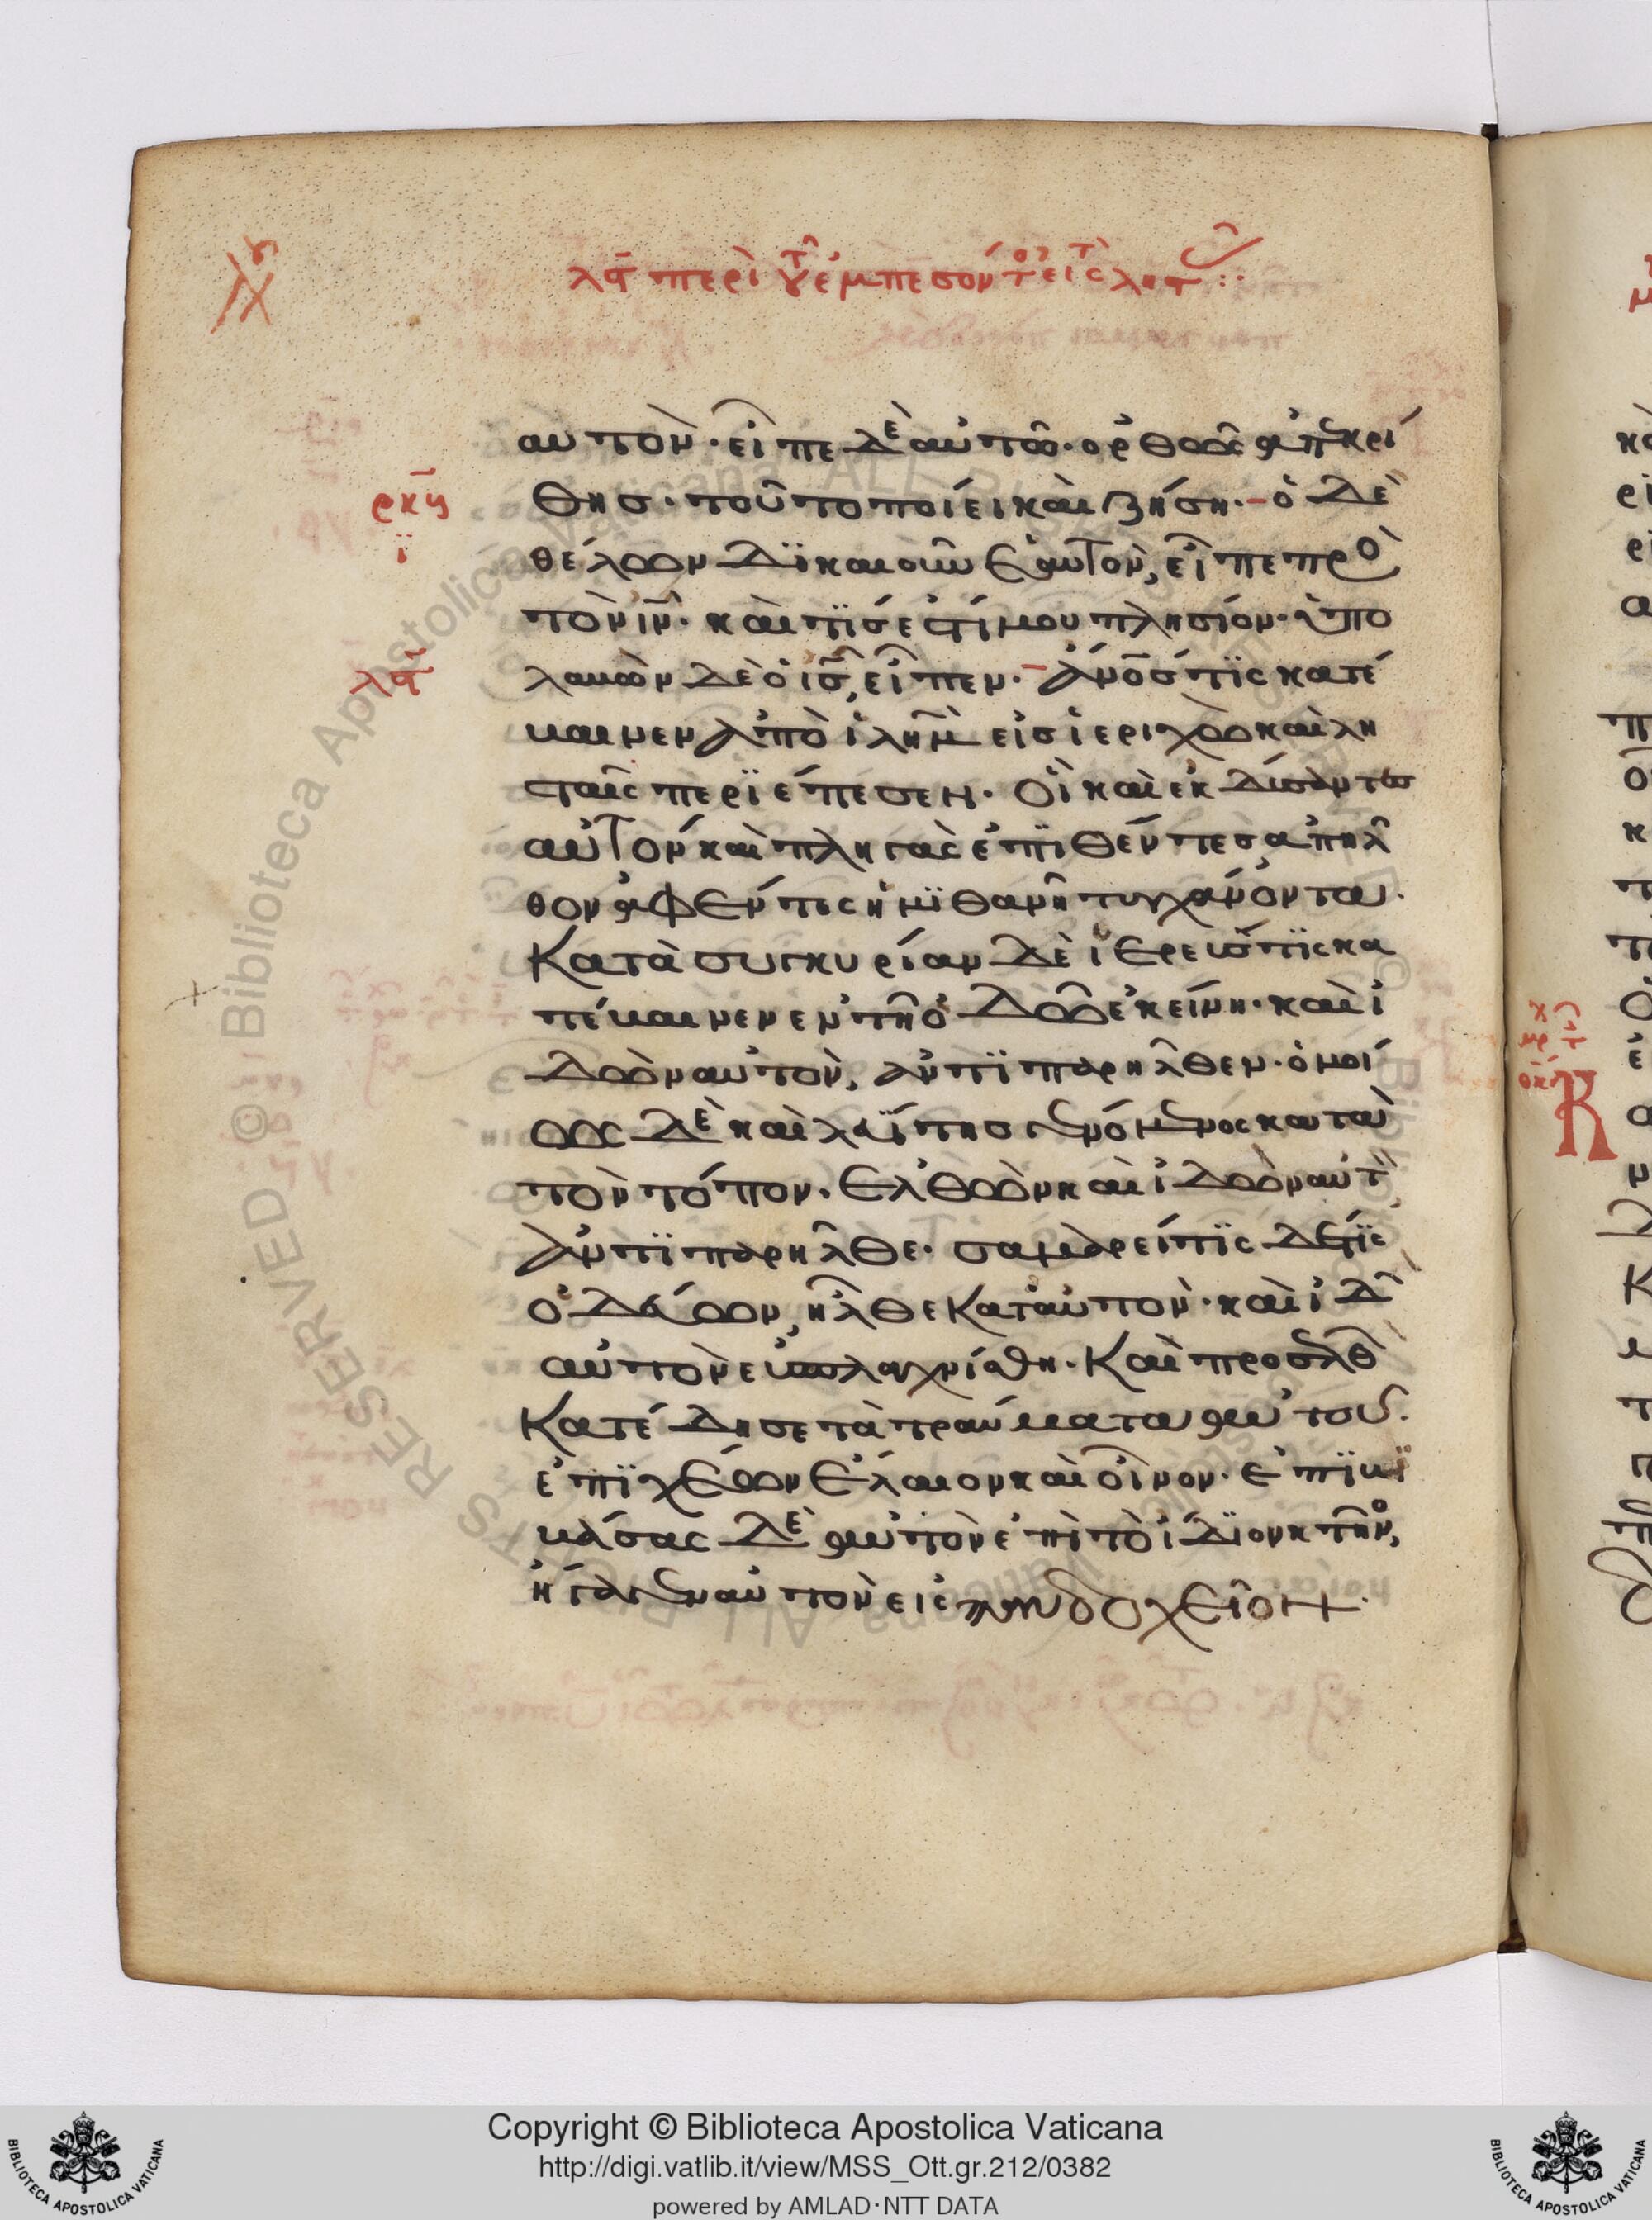 λδ περὶ τοῦ ἐμπεσόντος εἰς τοὺς
αυτὸν· εἶπε δὲ αὐτῶ· ὀρθῶς ἀπεκρί
ρκγ
ϊ
θησ· τοῦτο ποίει καὶ ζήση·– ὁ δὲ
θέλων δϊκαιοῦν ἑαυτὸν, εἶπε πρὸ
τὸν ιν· καὶ τϊσ ἐστί μου πλησίον· ὑπο
λδ
λαβὼν δὲ ὁ ισ, εἶπεν·– ἄνοσ τϊς κατέ
βαινεν ἀπὸ ιλημ εἰσ ἱεριχὼ καὶ λη
σταῖς περϊέπεσεν· οἳ καὶ ἐκδύσαντεσ
αὐτὸν καὶ πληγὰς ἐπϊθέντεσ ἀπῆλ
θον ἀφέντες ἡμϊθανῆ τυγχάνοντα·
Κατὰ συγκυρίαν δὲ ἱερεύσ τϊς κα
τέβαινεν ἐν τῆ ὁδῶ ἐκείνη· καὶ ἰ
δὼν αὐτὸν, ἀντϊπαρῆλθεν· ὁμοί
ως δὲ καὶ λευΐτησ γενόμενος κατὰ
τὸν τόπον· ἐλθὼν καὶ ἰδὼν αὐτ
ἀντϊπαρῆλθε· σαμαρείτϊς δέ τϊς
ὁδεύων, ἦλθε κατ αὐτὸν· καὶ ἰδ
αὐτὸν εὐσπλαγχνίσθη· Καὶ προσελθ
Κατέδησε τὰ τραύματα αὐτοῦ·
ἐπϊχέων ἔλαιον καὶ οἶνον· ἐπϊβϊ
βάσας δὲ αὐτὸν ἐπὶ τὸ ἴδϊον κτῆνο,
ἤγαγεν αὐτὸν εἰς πανδοχεῖον·
Copyright © Biblioteca Apostolica Vaticana
http://digi.vatlib.it/view/MSS_Ott.gr.212/0382
powered by AMLAD·NTT DATA